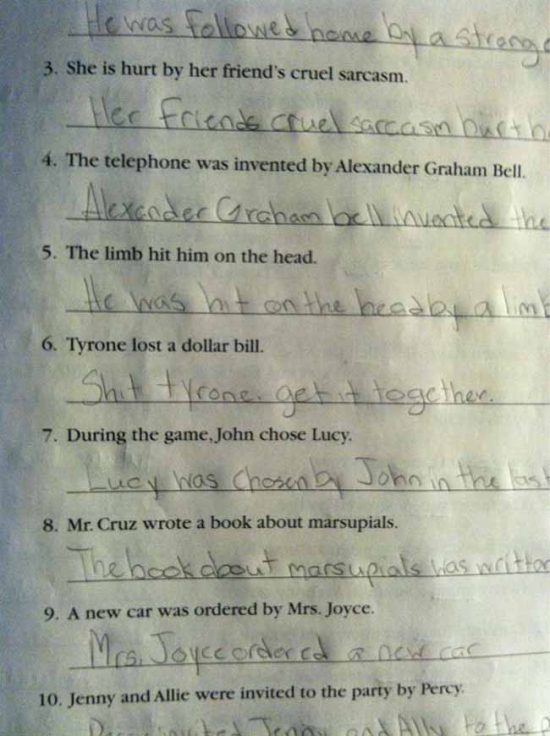 He was followed home by a strange
3. She is hurt by her friend's cruel sarcasm.
Her Friends cruel sarcasm hurt h
4. The telephone was invented by Alexander Graham Bell.
Alexander Graham bell invented the
5. The limb hit him on the head.
He was hit on the head by a limb
6. Tyrone lost a dollar bill.
Shit tyrone. get it together.
7. During the game, John chose Lucy.
Lucy was chosen by John in the last
8. Mr. Cruz wrote a book about marsupials.
The book about marsupials was writtan
9. A new car was ordered by Mrs. Joyce.
Mrs. Joyce ordered a new car
10. Jenny and Allie were invited to the party by Percy.
Percy invited Jenny and Ally to the p